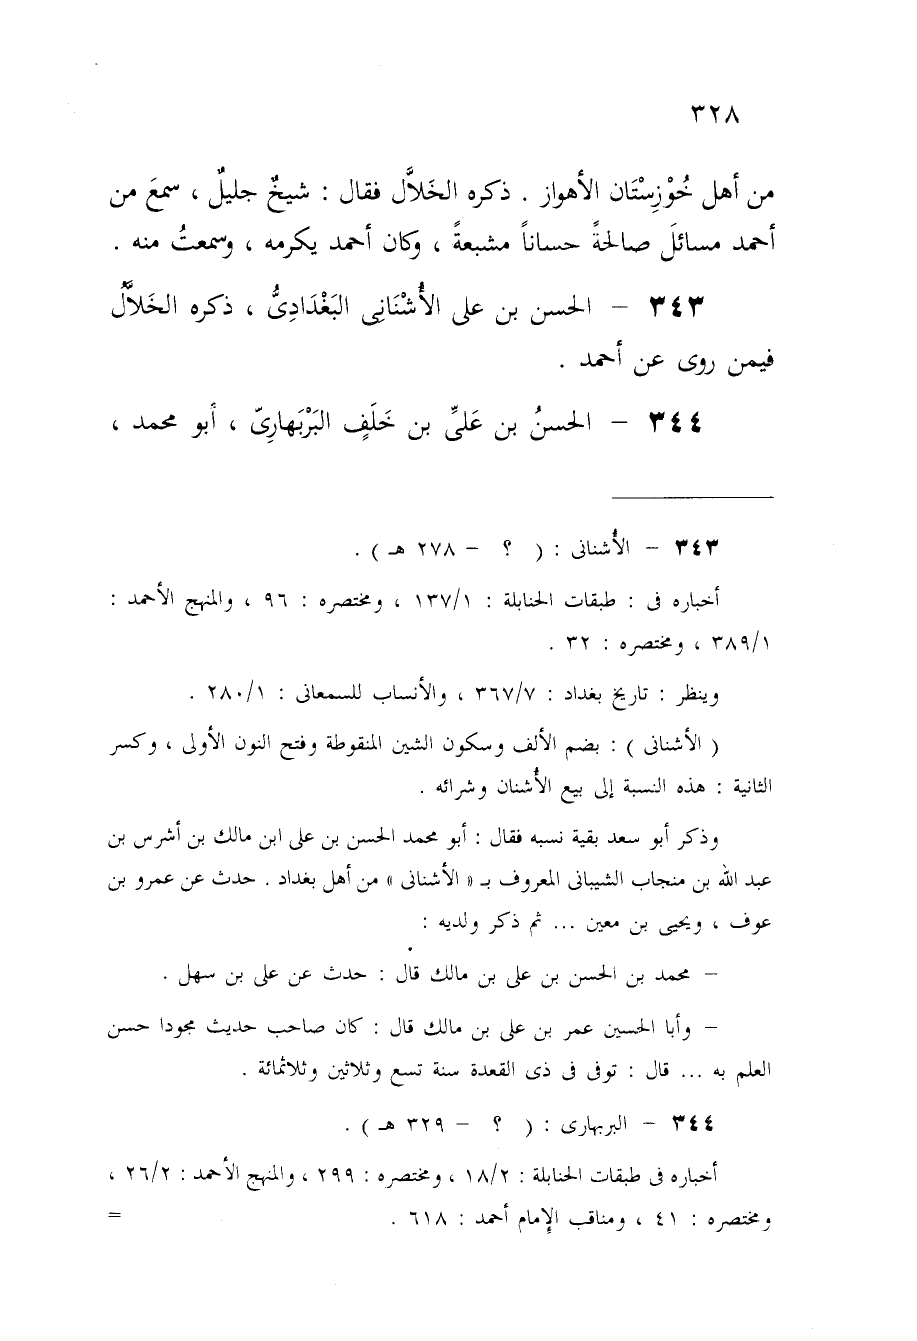 ٣٢٨
من أهل خُوْزِسْتَان الأهواز . ذكره الخَلاَّل فقال : شيخٌ جليلٌ ، سمعَ من
أحمد مسائلَ صالحةً حساناً مشبعةً ، وكان أحمد يكرمه ، وسمعتُ منه .
٣٤٣ – الحسن بن على الأُشْنَانِى البَغْدَادِىُّ ، ذكره الخَلاَّلُ
فيمن روى عن أحمد .
٣٤٤ – الحسنُ بن عَلىِّ بن خَلَفٍ البَرْبَهارِىّ ، أبو محمد ،
٣٤٣ – الأُشنانى : ( ؟ – ٢٧٨ هـ ) .
أخباره فى : طبقات الحنابلة : ١٣٧/١ ، ومختصره : ٩٦ ، والمنهج الأحمد :
٣٨٩/١ ، ومختصره : ٣٢ .
وينظر : تاريخ بغداد : ٣٦٧/٧ ، والأنساب للسمعانى : ٢٨٠/١ .
( الأشنانى ) : بضم الألف وسكون الشين المنقوطة وفتح النون الأولى ، وكسر
الثانية : هذه النسبة إلى بيع الأُشنان وشرائه .
وذكر أبو سعد بقية نسبه فقال : أبو محمد الحسن بن على ابن مالك بن أشرس بن
عبد الله بن منجاب الشيبانى المعروف بـ « الأشنانى » من أهل بغداد . حدث عن عمرو بن
عوف ، ويحيى بن معين ... ثم ذكر ولديه :
– محمد بن الحسن بن على بن مالك قال : حدث عن على بن سهل .
– وأبا الحسين عمر بن على بن مالك قال : كان صاحب حديث مجودا حسن
العلم به ... قال : توفى فى ذى القعدة سنة تسع وثلاثين وثلاثمائة .
٣٤٤ – البربهارى : ( ؟ – ٣٢٩ هـ ) .
أخباره فى طبقات الحنابلة : ١٨/٢ ، ومختصره : ٢٩٩ ، والمنهج الأحمد : ٢٦/٢ ،
ومختصره : ٤١ ، ومناقب الإمام أحمد : ٦١٨ . =